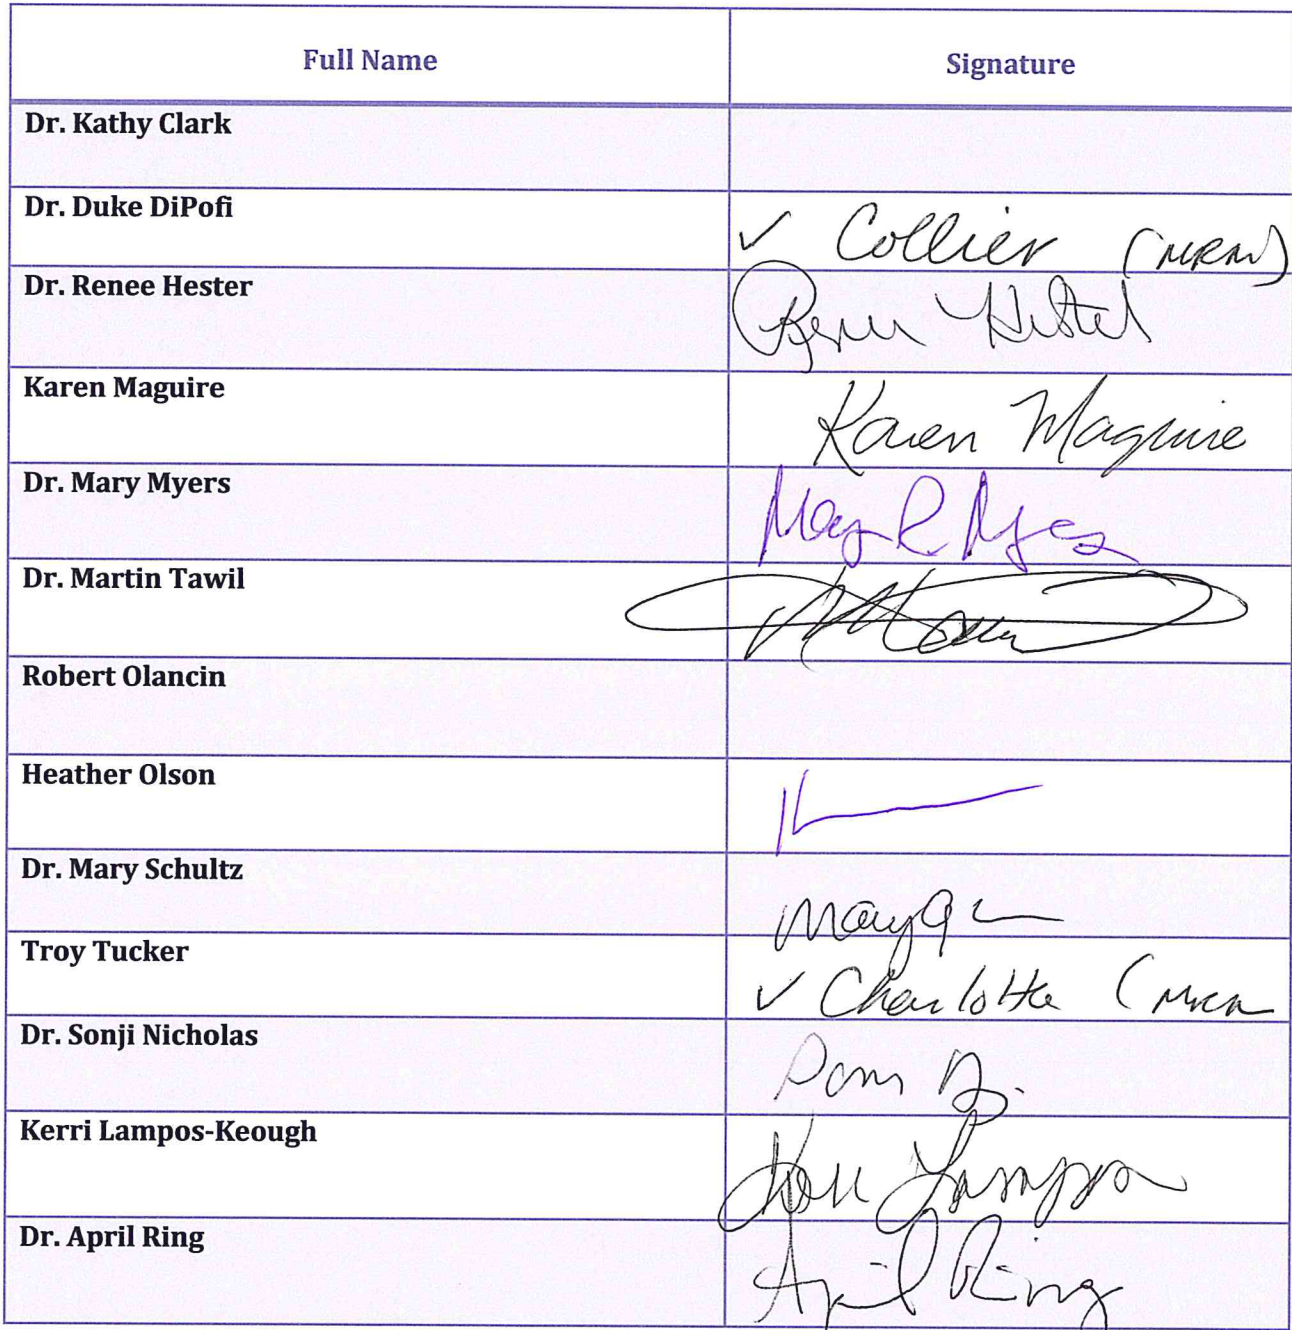 Full Name Signature
Dr. Kathy Clark
Dr. Duke DiPofi ✓ Collier (MRM)
Dr. Renee Hester Renee Hester
Karen Maguire Karen Maguire
Dr. Mary Myers Mary R Myers
Dr. Martin Tawil
Robert Olancin
Heather Olson
Dr. Mary Schultz Mary
Troy Tucker ✓ Charlotte
Dr. Sonji Nicholas
Kerri Lampos-Keough Kerri Lampos
Dr. April Ring April Ring